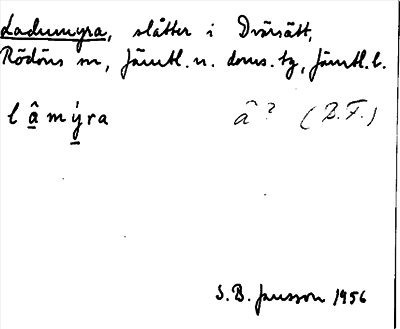 Ladumyra, slåtter i Dvärsätt,
Rödöns sn, Jämtl. n. doms. tg, Jämtl. l.
l â m ý ra â? (B.F.)
S. B. Jansson 1956